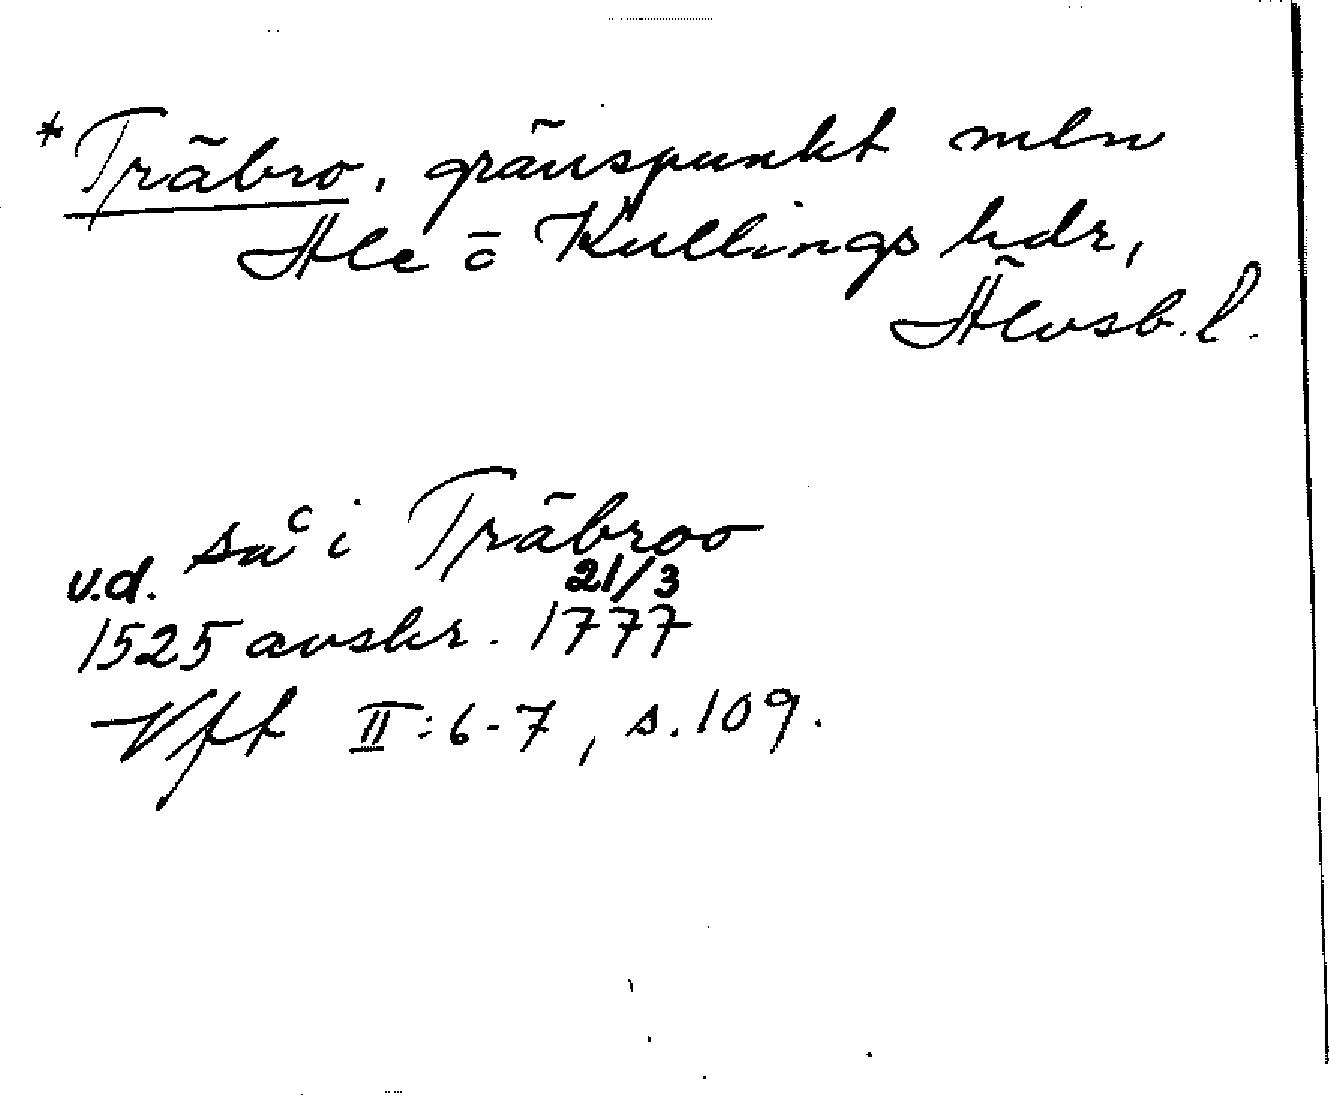 *Träbro, gränspunkt mln
Ale o Kullings hdr,
Älvsb. l.
såc i Träbroo
v.d. 21/3
1525 avskr. 1777
Vfft II:6-7, s.109.